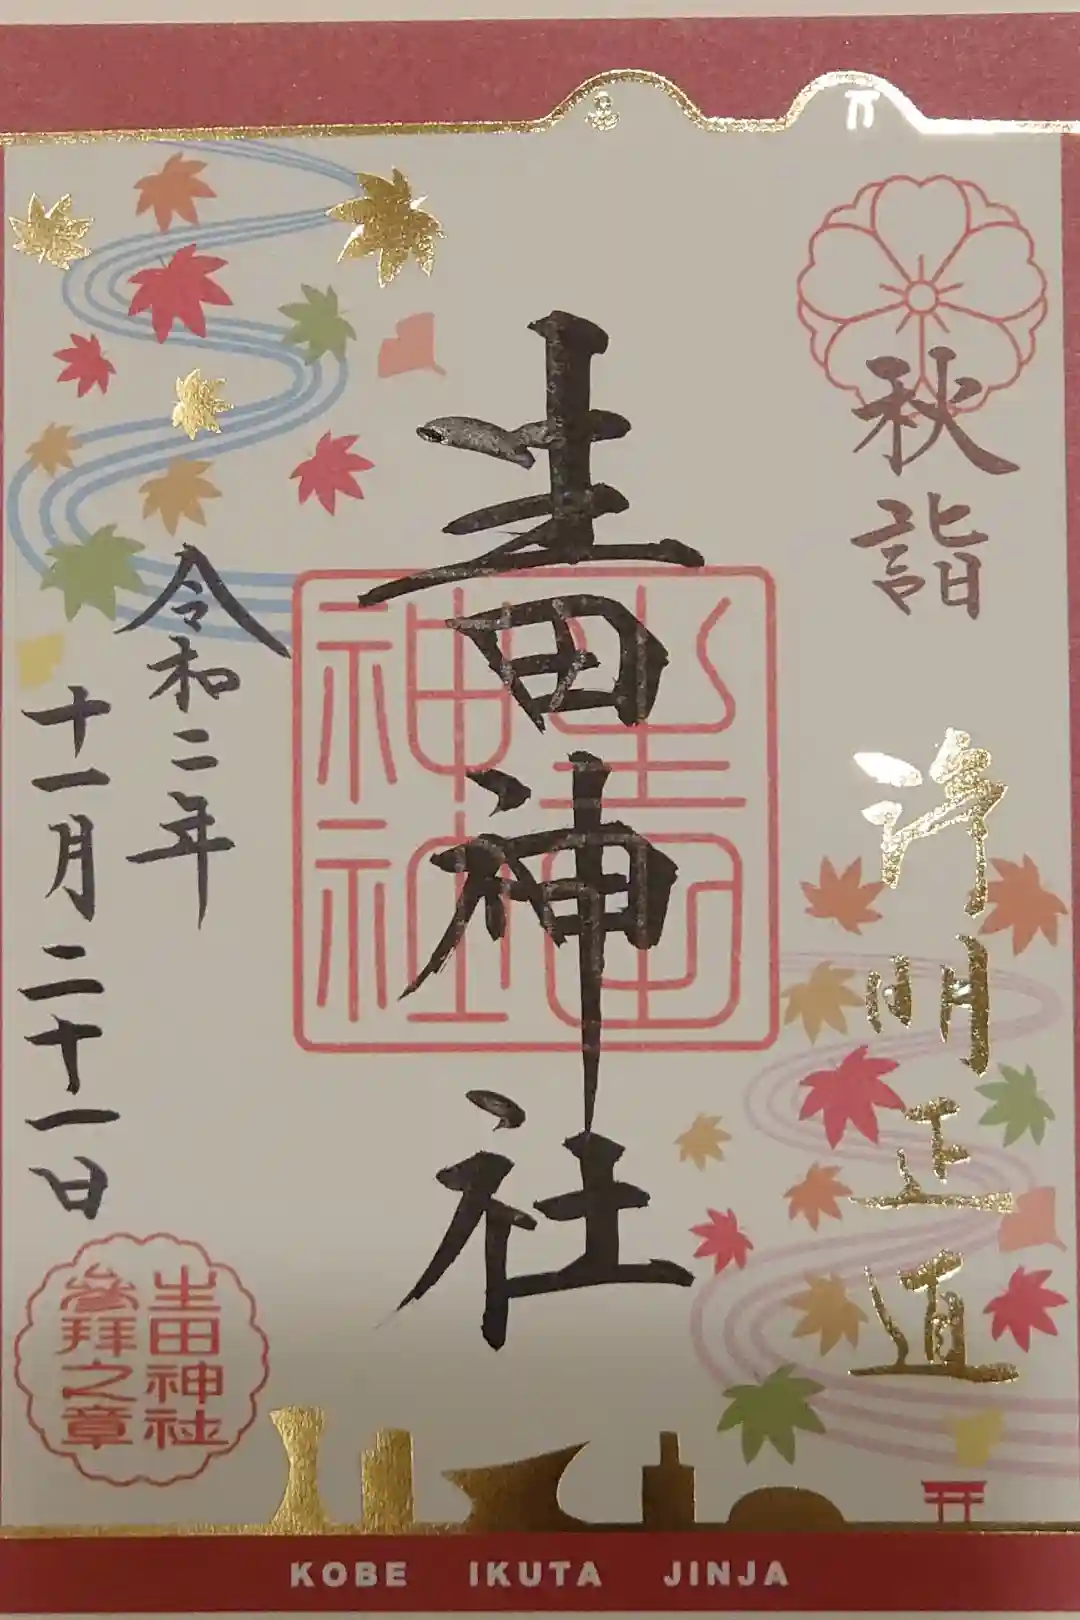 秋詣
浄明正道
生田神社
生田
神社
令和二年
十一月二十一日
生田神社
參拜之章
KOBE IKUTA JINJA